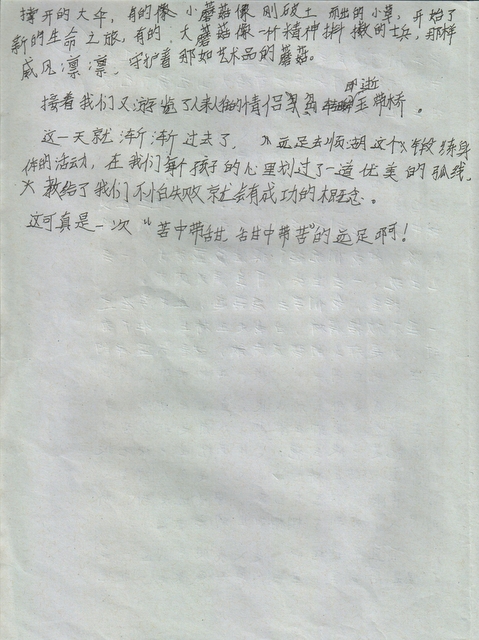 撑开的大伞，有的像小蘑菇像刚破土而出的小草，开始了
新的生命之旅，有的大蘑菇像一个精神抖擞的士兵，那样
威风凛凛，守护着那如艺术品的蘑菇。
接着我们又游览了人来人往的情侣 玉带桥。
这一天就渐渐过去了，远足去顺湖这个 锻练身
体的活动，在我们每个孩子的心里划过了一道优美的弧线，
教给了我们不怕失败就会有成功的概念。
这可真是一次“苦中带甜，甜中带苦”的远足啊！